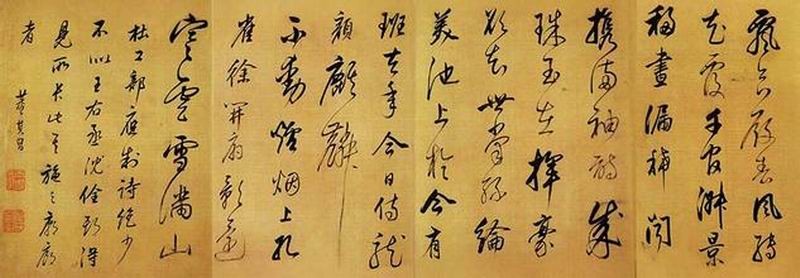 飄合殿春風轉
花覆千官淑景
移晝漏稀聞
攜滿袖詩成
珠玉在揮豪
欲知世掌絲綸
美池上於今有
班去年今日侍龍
顏麒麟
不動爐烟上孔
雀徐開扇影還
寒雲雪滿山
杜工部應制詩絕少
不似王右丞沈佺期得
見所長此其施之廊廟
者
董其昌